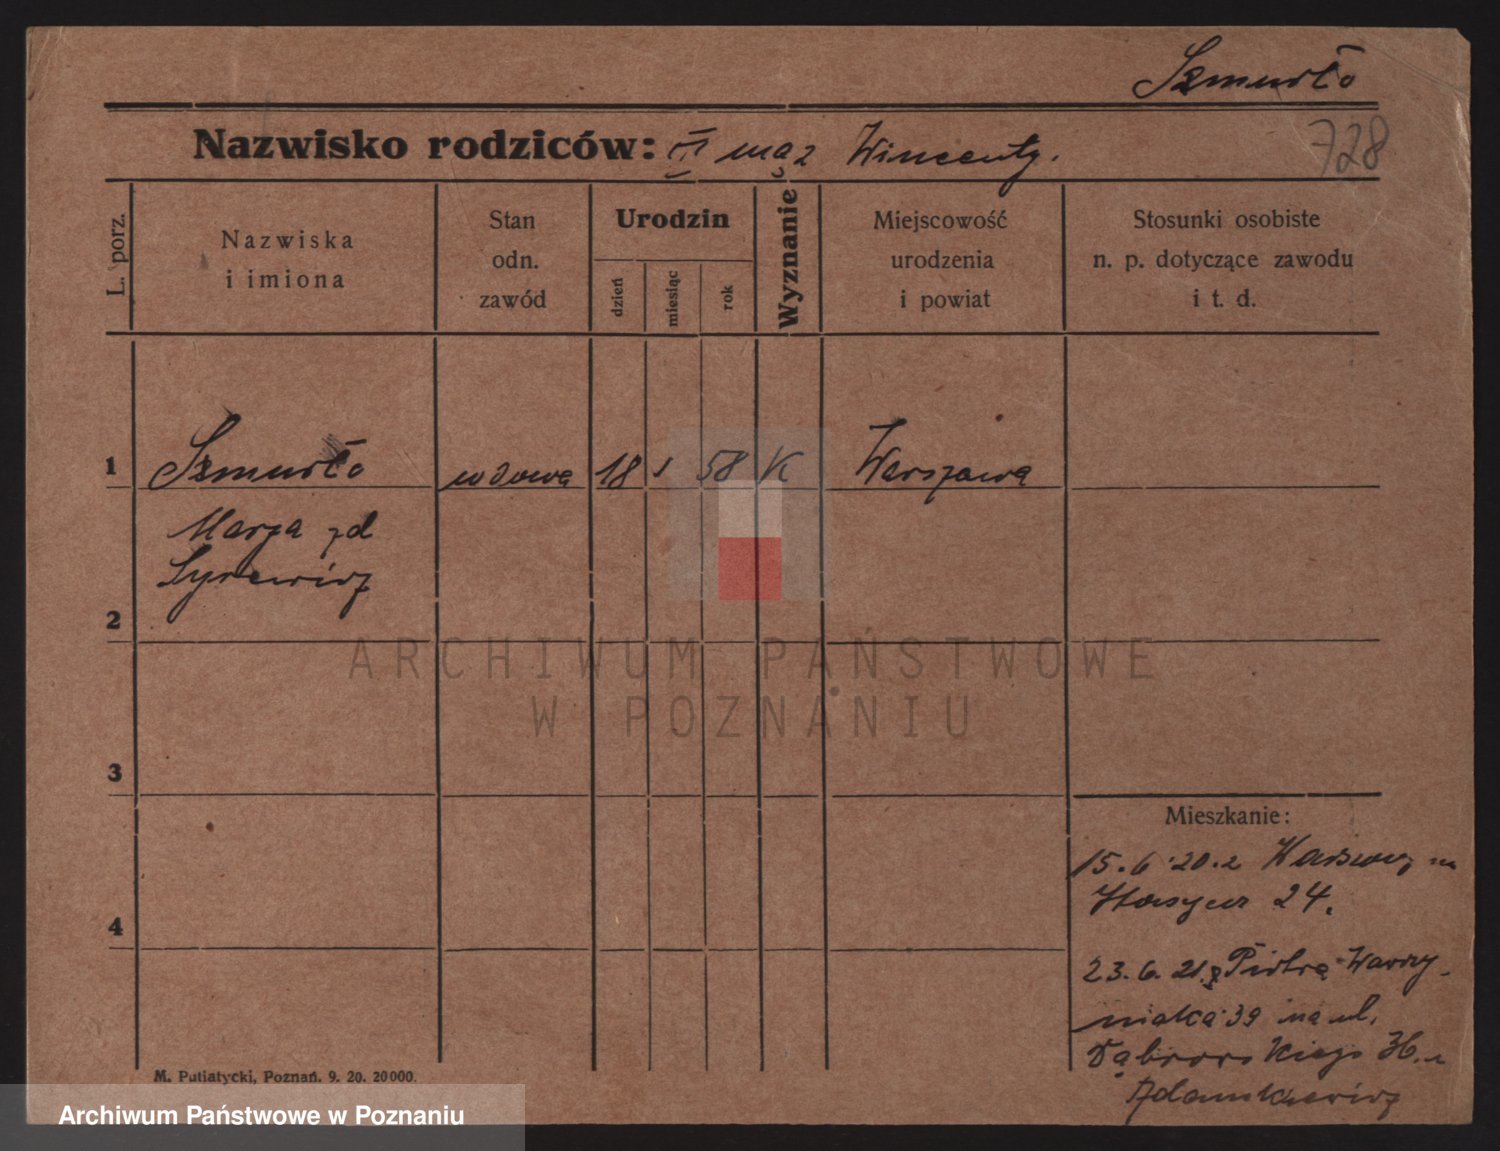 Szmurło
728
Nazwisko rodziców: II mąz Wincenty.
L. porz.
Nazwiska
i imiona
Stan
odn.
zawód
Urodzin
dzień
miesiąc
rok
Wyznanie
Miejscowość
urodzenia
i powiat
Stosunki osobiste
n. p. dotyczące zawodu
i t. d.
1
Szmurło
wdowa
18
1
58
K
Warszawa
Marja zd
2
3
4
ARCHIWUM PAŃSTWOWE
W POZNANIU
Mieszkanie:
15.6.20.z Warszawy na
24.
23.6.21.z Piotra Wawrzy-
niaka 39 na ul.
Dąbrowskiego 36. u
Adamkiewicz
M. Putiatycki, Poznań. 9. 20. 20000.
Archiwum Państwowe w Poznaniu